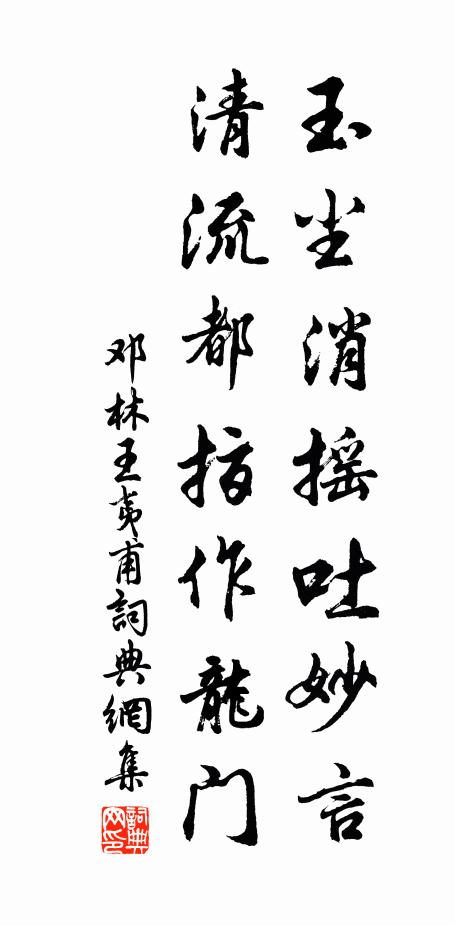 玉尘消摇吐妙言
清流都指作龍门
邓林王夷甫詞典網集
詞典网印